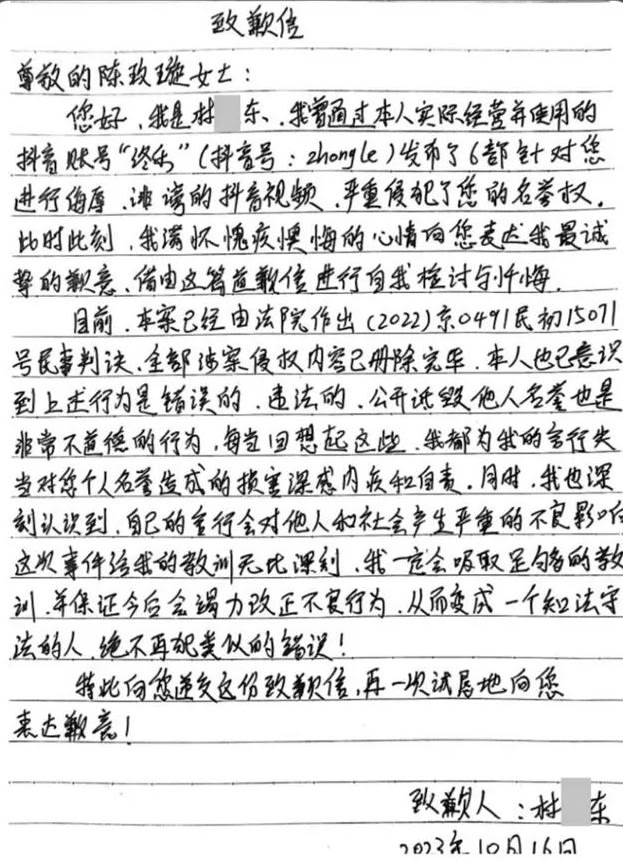 致歉信
尊敬的陈玫璇女士：
您好，我是林 东、我曾通过本人实际经营并使用的
抖音账号“终乐”（抖音号：zhongle）发布了6部针对您
进行侮辱、诽谤的抖音视频，严重侵犯了您的名誉权。
此时此刻，我满怀愧疚懊悔的心情向您表达我最诚
挚的歉意、借由这篇道歉信进行自我检讨与忏悔。
目前，本案已经由法院作出（2022）京0491民初15071
号民事判决、全部涉案侵权内容已删除完毕，本人也已意识
到上述行为是错误的、违法的、公开诋毁他人名誉也是
非常不道德的行为，每当回想起这些，我都为我的言行失
当对您个人名誉造成的损害深感内疚和自责。同时，我也深
刻认识到，自己的言行会对他人和社会产生严重的不良影响
这次事件给我的教训无比深刻，我一定会吸取足够的教
训，并保证今后会竭力改正不良行为，从而变成一个知法守
法的人，绝不再犯类似的错误！
特此向您递交这份致歉信，再一次诚恳地向您
表达歉意！
致歉人：林 东
2023年10月16日